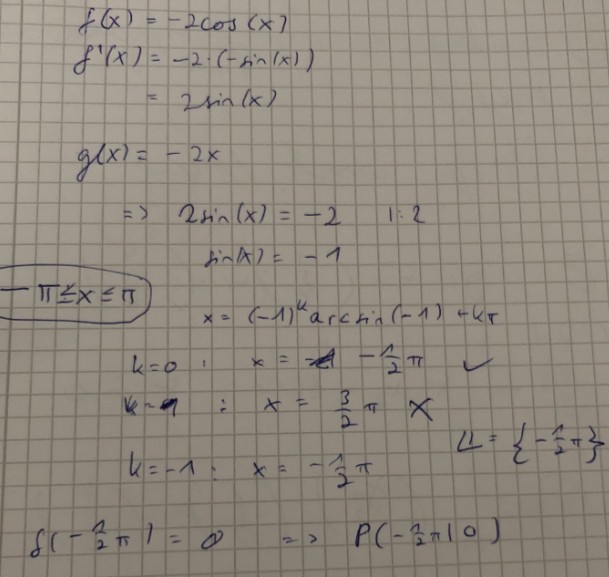 f(x) = -2cos(x)
f'(x) = -2·(-sin(x))
= 2sin(x)
g(x) = -2x
=> 2sin(x) = -2 |:2
sin(x) = -1
-π≤x≤π
x = (-1)^k arcsin(-1) + kπ
k=0 : x = -1/2 π ✓
k=1 : x = 3/2 π X
k=-1 : x = -1/2 π
𝕃 = {-1/2 π}
f(-1/2 π) = 0 => P(-1/2 π | 0)